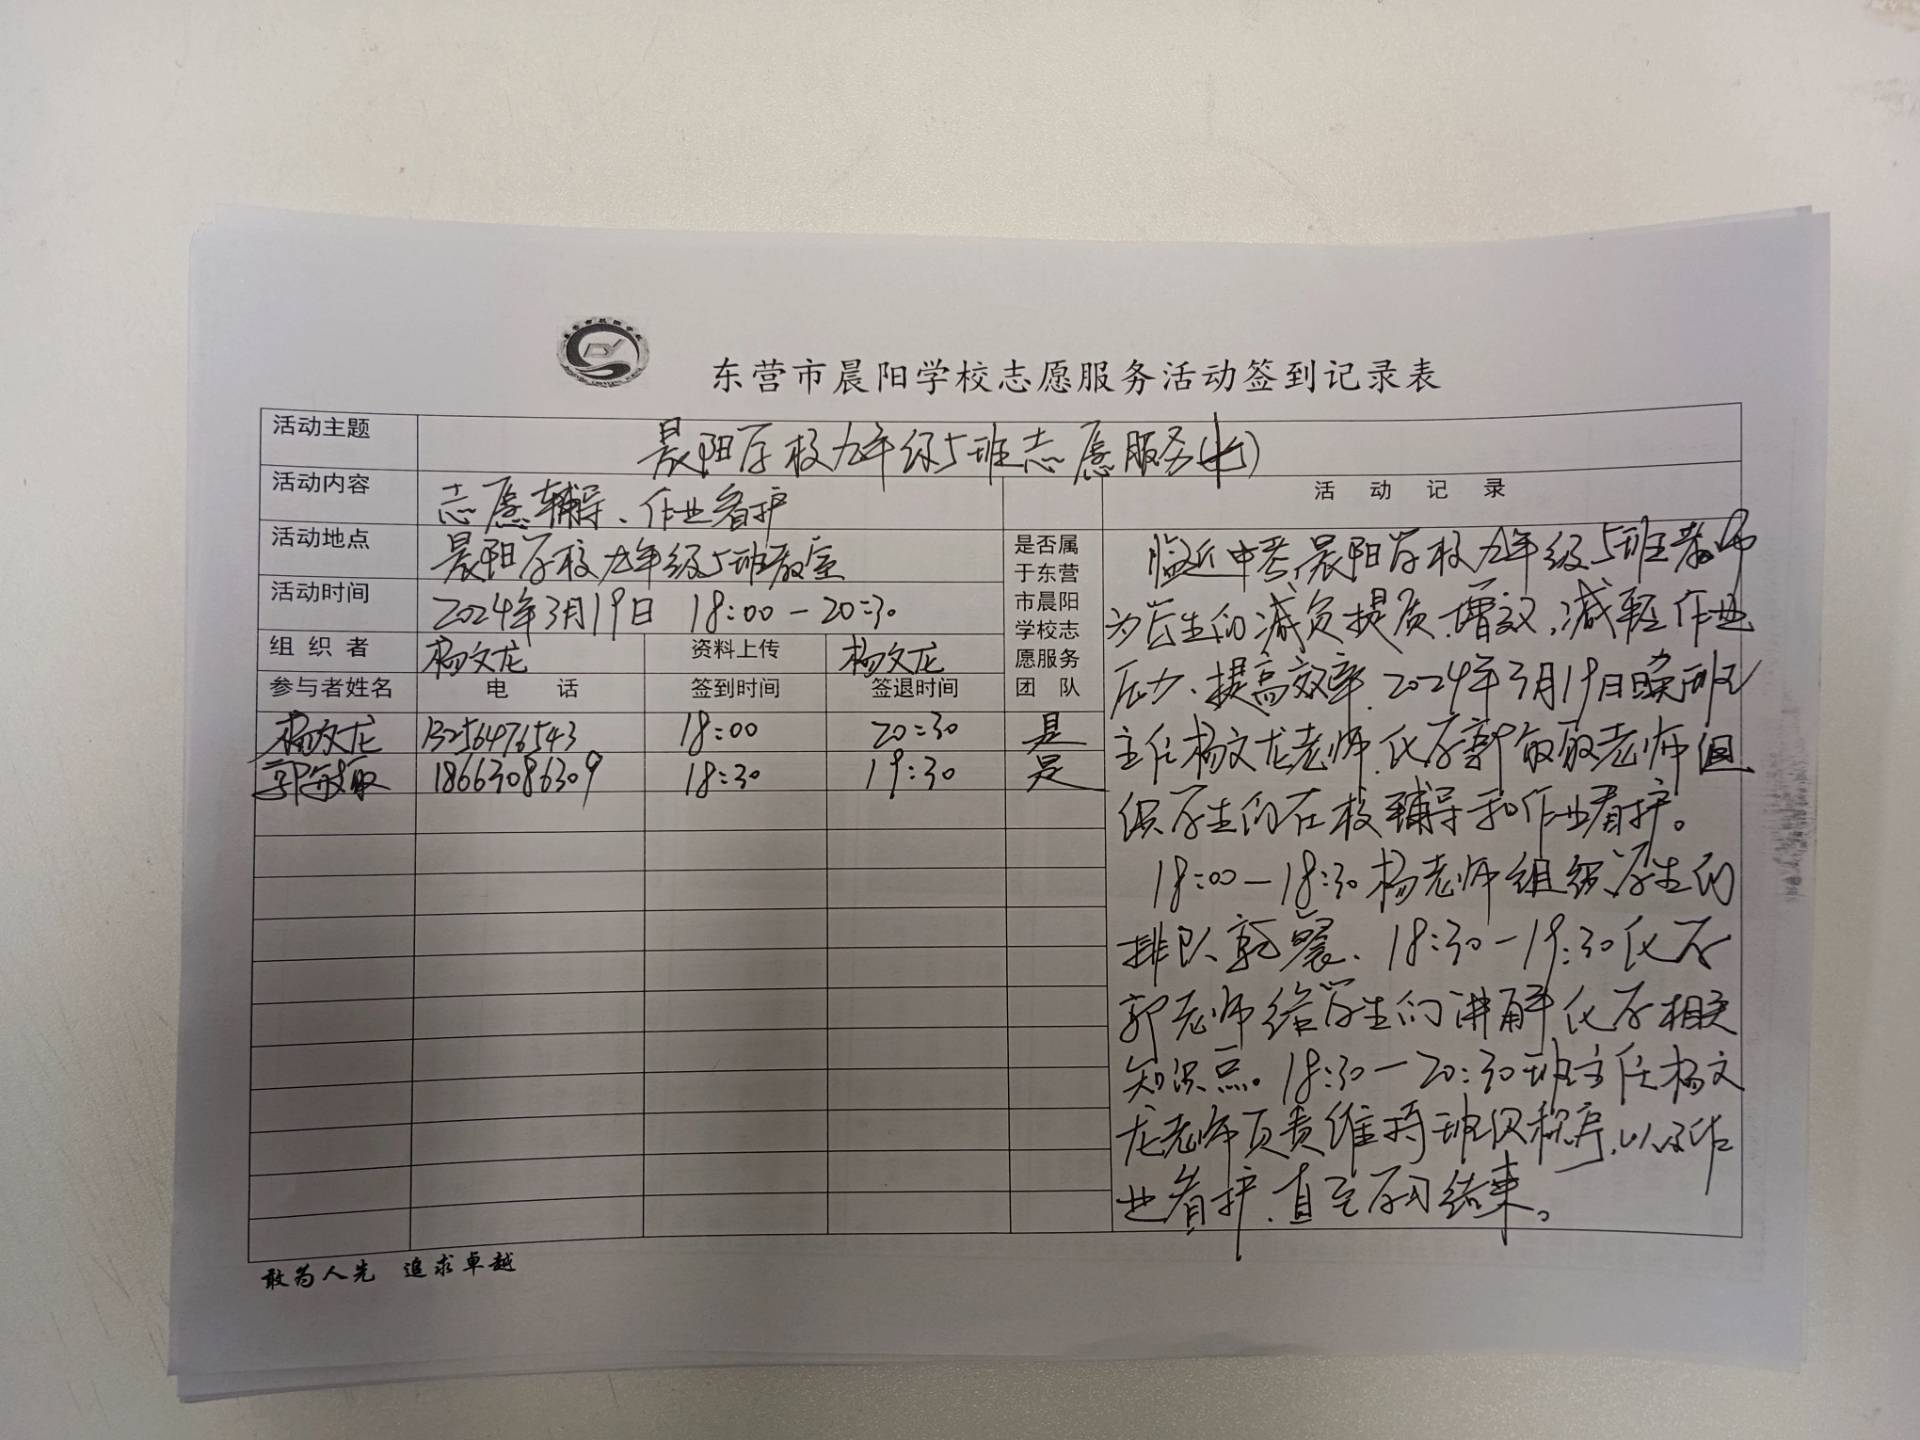 东营市晨阳学校志愿服务活动签到记录表
活动主题 晨阳学校九年级5班志愿服务
活动内容 志愿辅导、作业看护
活动记录
活动地点 晨阳学校九年级5班教室
活动时间 2024年3月19日 18:00-20:30
组织者 杨文龙 资料上传 杨文龙
是否属
于东营
市晨阳
学校志
愿服务
团队
参与者姓名 电话 签到时间 签退时间
杨文龙 13256476543 18:00 20:30 是
郭敏敢 18663086309 18:30 19:30 是
临近中考,晨阳学校九年级5班教师
为学生的减负提质、增效,减轻作业
压力、提高效率,2024年3月19日晚班
主任杨文龙老师,化学郭敏敢老师组
织学生们在校辅导和作业看护。
18:00-18:30杨老师组织学生们
排队就餐、18:30-19:30化学
郭老师给学生们讲解化学相关
知识点。18:30-20:30班主任杨文
龙老师负责维持班级秩序,以及作
业看护,直至学习结束。
敢为人先 追求卓越